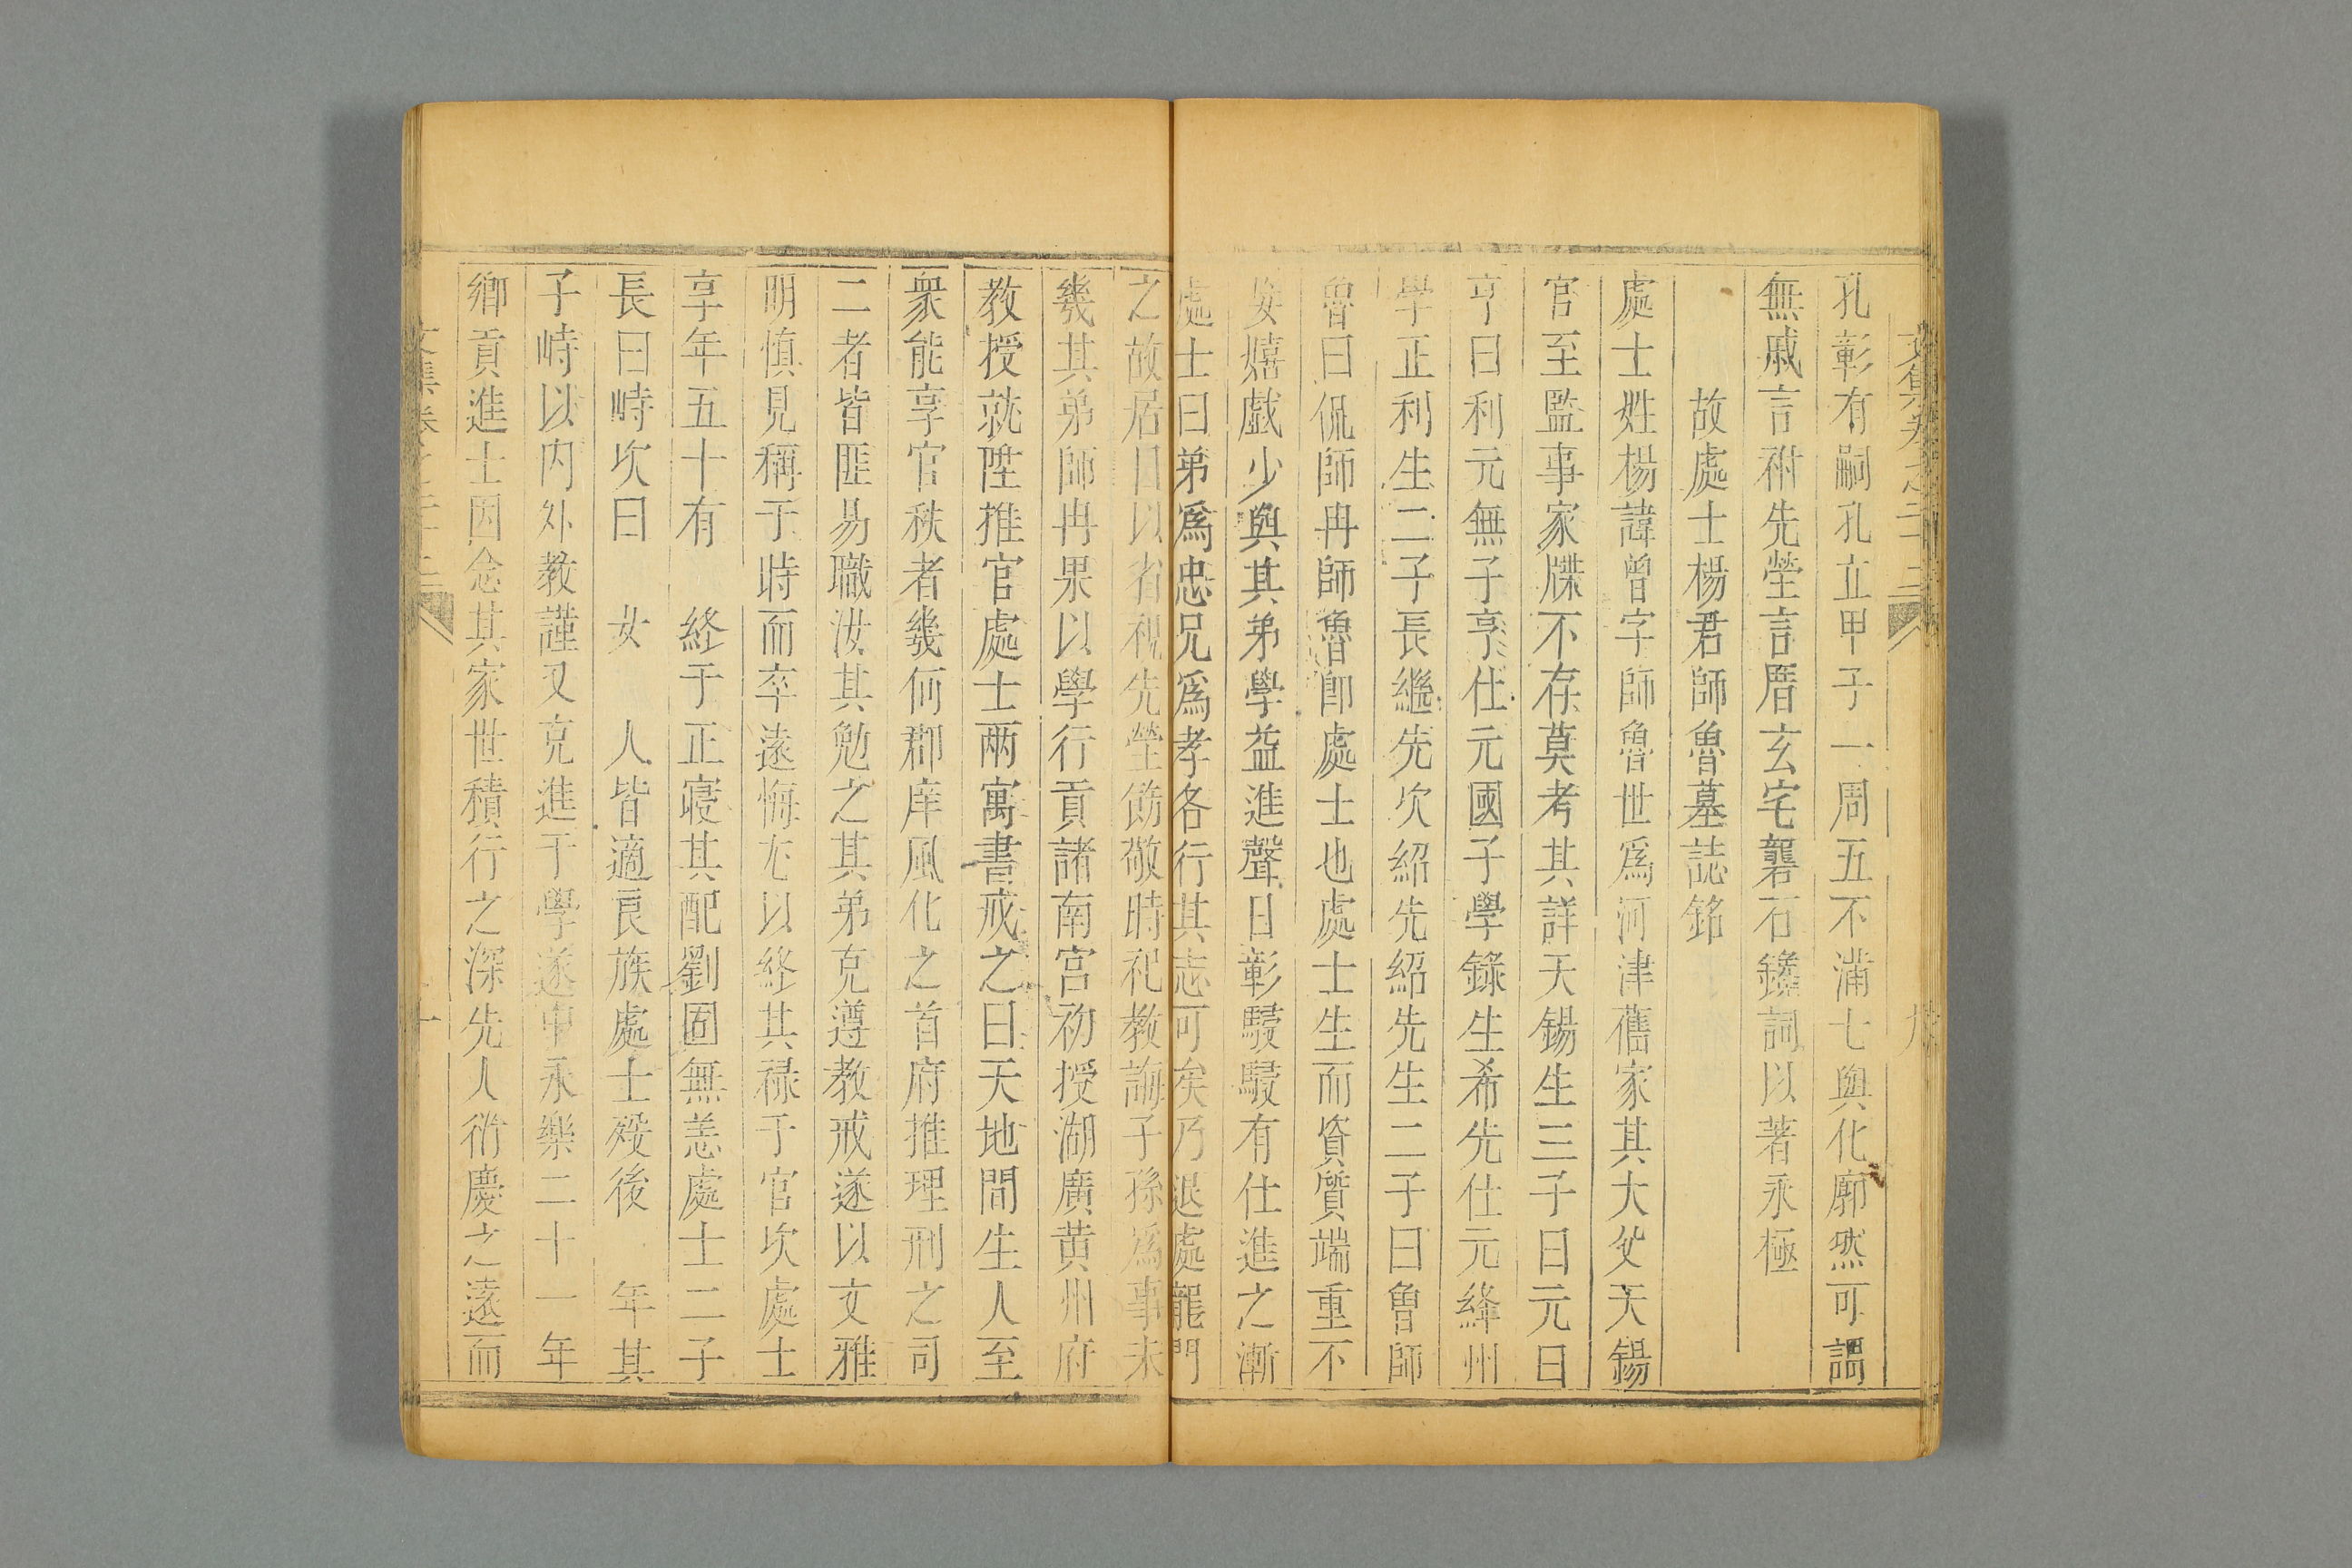 孔彰有嗣孔立甲子一周五不滿七與化廓然可謂
無戚言祔先塋言厝玄宅礱石鑱詞以著永極
故處士楊君師魯墓誌銘
處士姓楊諱曾字師魯世爲河津舊家其大父天錫
官至監事家牒不存莫考其詳天錫生三子曰元曰
亨曰利元無子亨仕元國子學錄生希先仕元絳州
學正利生二子長繼先次紹先紹先生二子曰魯師
魯曰侃師冉師魯卽處士也處士生而資質端重不
妄嬉戲少與其弟學益進聲日彰駸駸有仕進之漸
處士曰弟爲忠兄爲孝各行其志可矣乃退處龍門
之故居日以省視先塋飭敬時祀教誨子孫爲事未
幾其弟師冉果以學行貢諸南宮初授湖廣黄州府
教授就陞推官處士兩寓書戒之曰天地間生人至
衆能享官秩者幾何郡庠風化之首府推理刑之司
二者皆匪易職汝其勉之其弟克遵教戒遂以文雅
明慎見稱于時而卒遠悔尤以終其禄于官次處士
享年五十有 終于正寢其配劉固無恙處士二子
長曰峙次曰 女 人皆適良族處士殁後 年其
子峙以内外教謹又克進于學遂中永樂二十一年
鄉貢進士因念其家世積行之深先人衍慶之遠而
文集卷之二十三
十